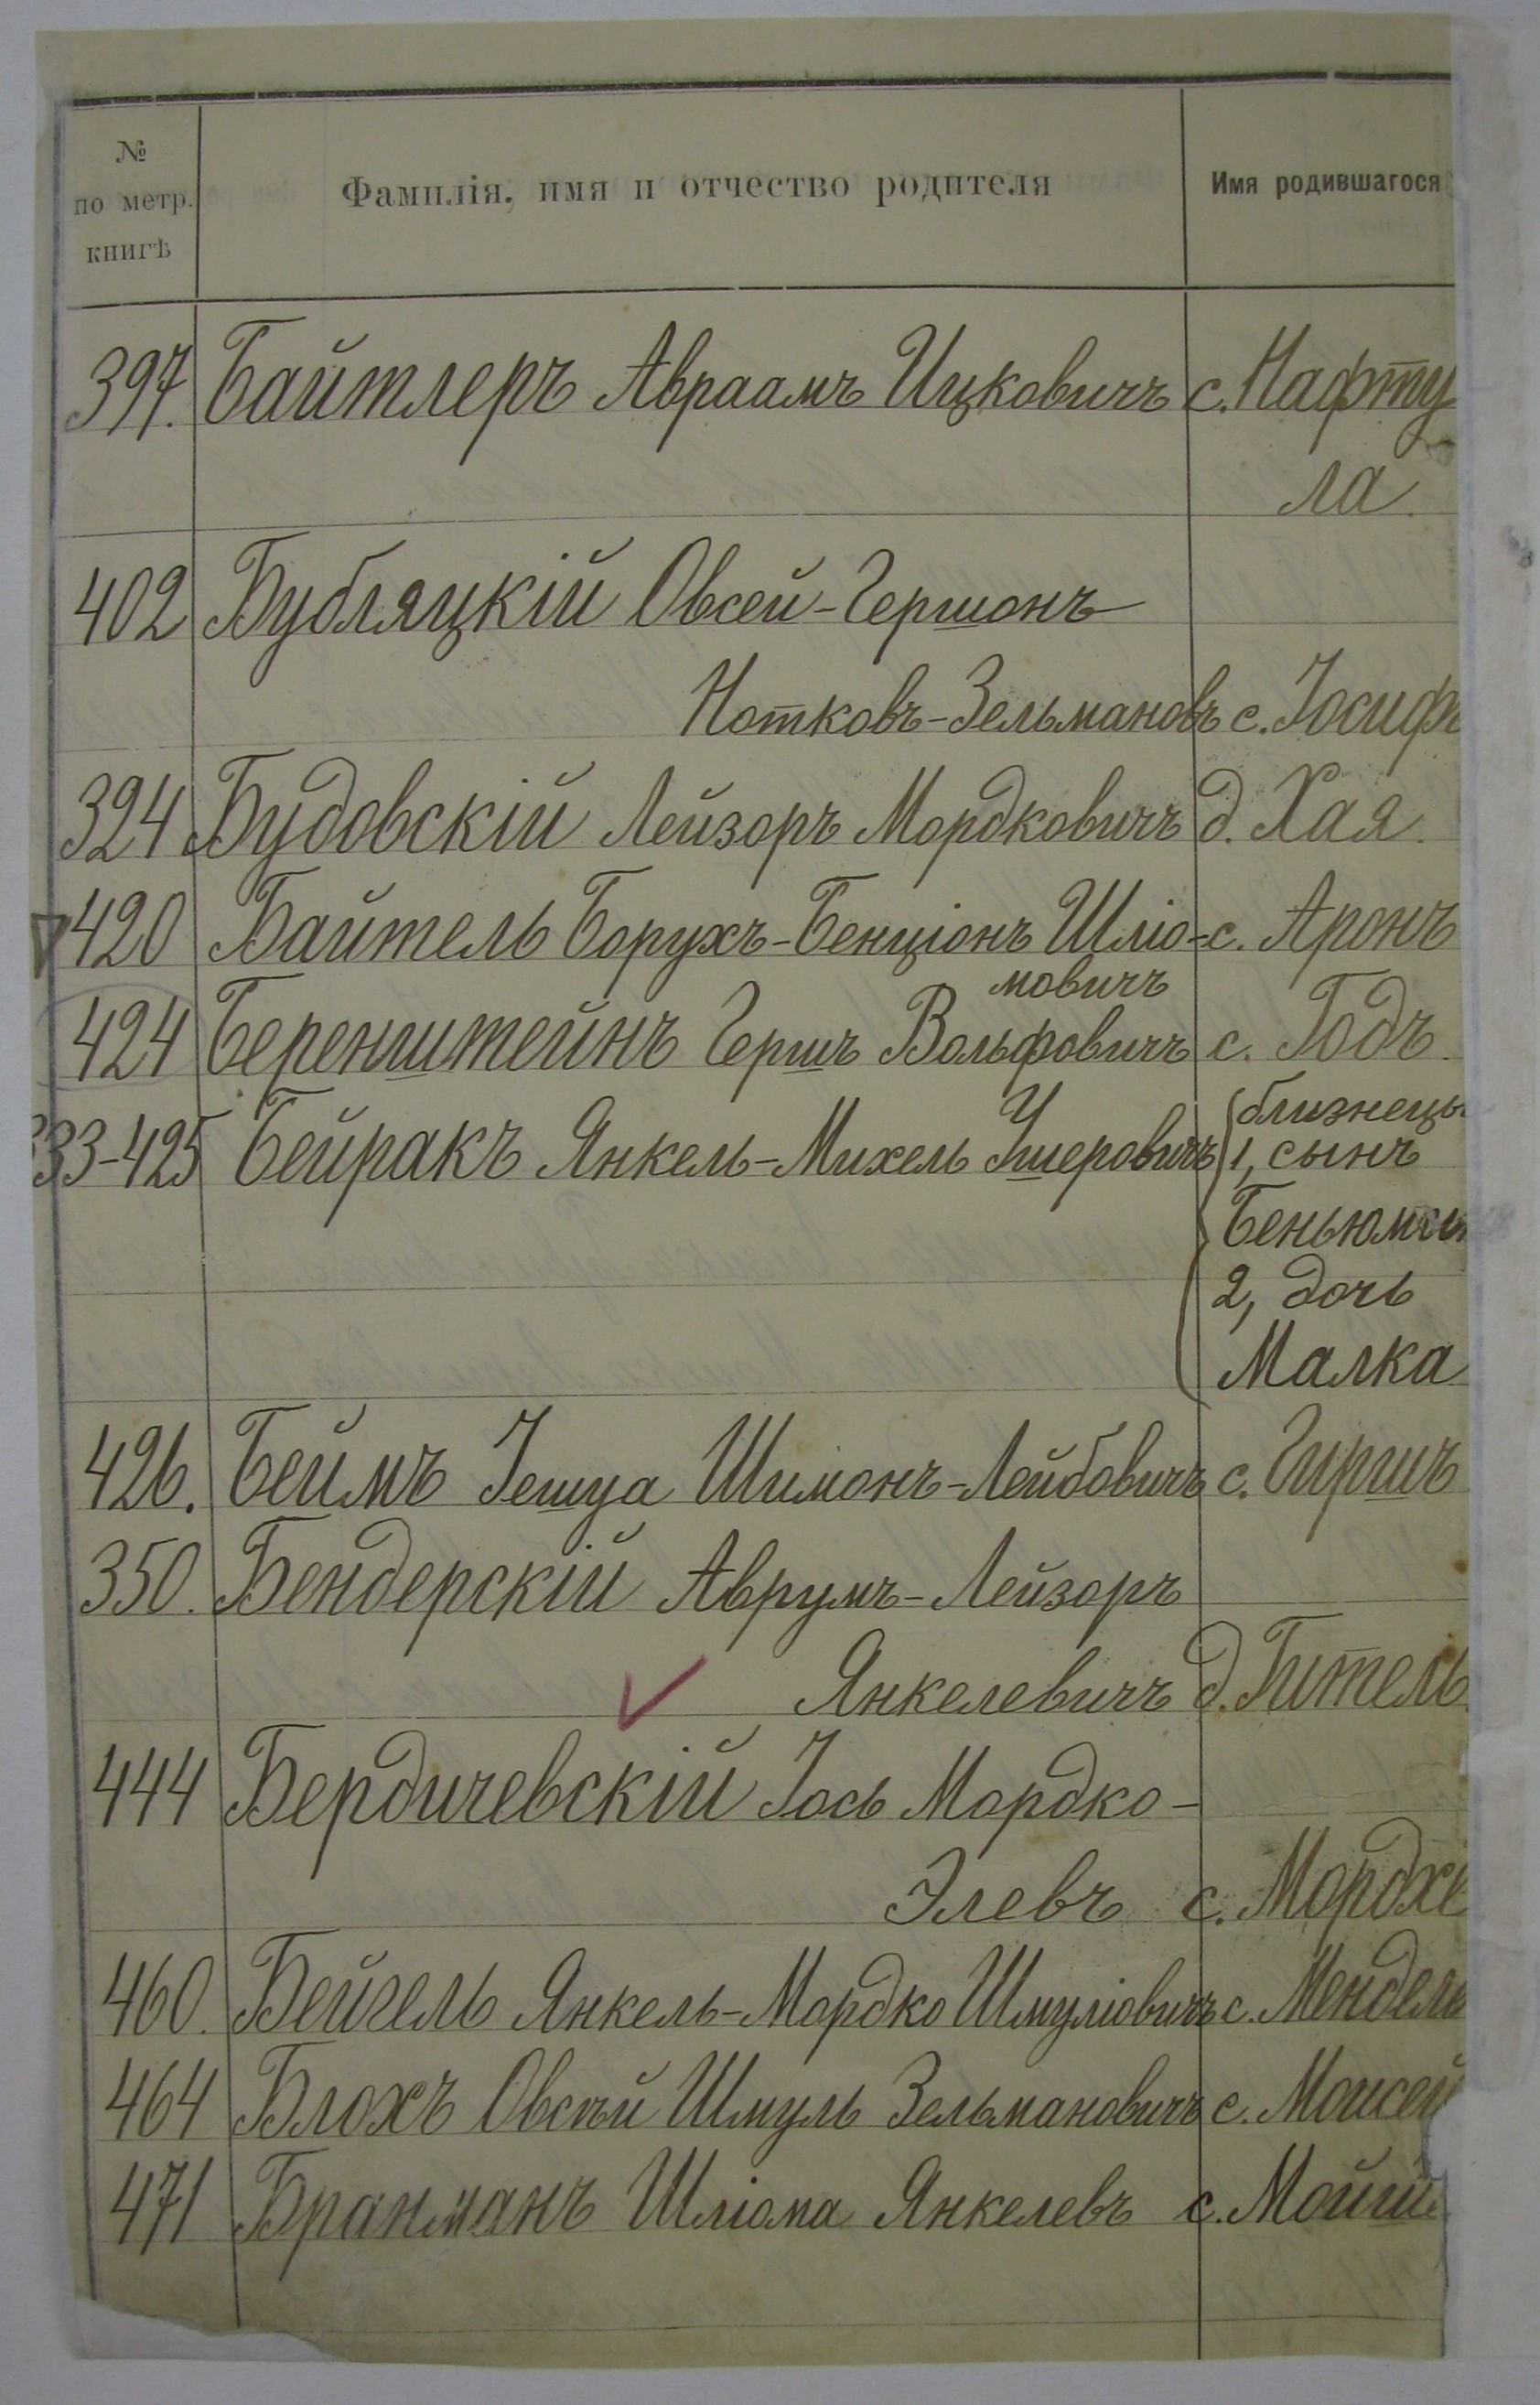 № по метр. книгѣ Фамилія, имя и отчество родителя Имя родившагося
397. Байтлеръ Авраамъ Ицковичъ с. Нафту
ла.
402 Бубляцкій Овсей-Гершонъ
Нотковъ-Зельмановъ с. Іосифъ
324 Будовскій Лейзоръ Мордковичъ д. Хая.
420 Байтель Борухъ-Бенціонъ Шліо- с. Аронъ
мовичъ
424 Беренштейнъ Гершъ Вольфовичъ с. Годъ.
333-425 Бейракъ Янкель-Михель Ушеровичъ близнецы
1, сынъ
Беньюмин
2, дочь
Малка
426. Беймъ Іешуа Шимонъ-Лейбовичъ с. Гиршъ
350. Бендерскій Аврумъ-Лейзоръ
Янкелевичъ д. Гитель
444 Бердичевскій Іось Мордко-
Элевъ с. Мордхе
460. Бейгель Янкель-Мордко Шмуліовичъ с. Мендель
464 Блохъ Овсѣй Шмуль Зельмановичъ с. Моисей
471 Бранманъ Шліома Янкелевъ с. Мойше